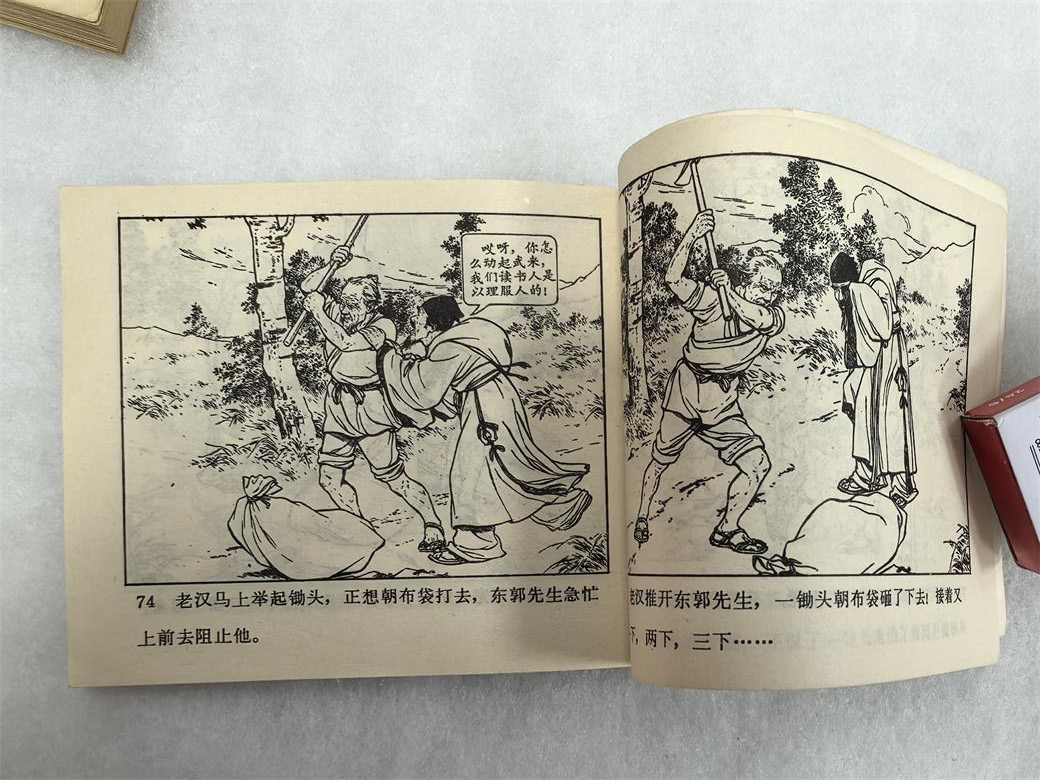 哎呀，你怎
么动起武来，
我们读书人是
以理服人的！
74 老汉马上举起锄头，正想朝布袋打去，东郭先生急忙
上前去阻止他。
老汉推开东郭先生，一锄头朝布袋砸了下去！接着又
下，两下，三下……